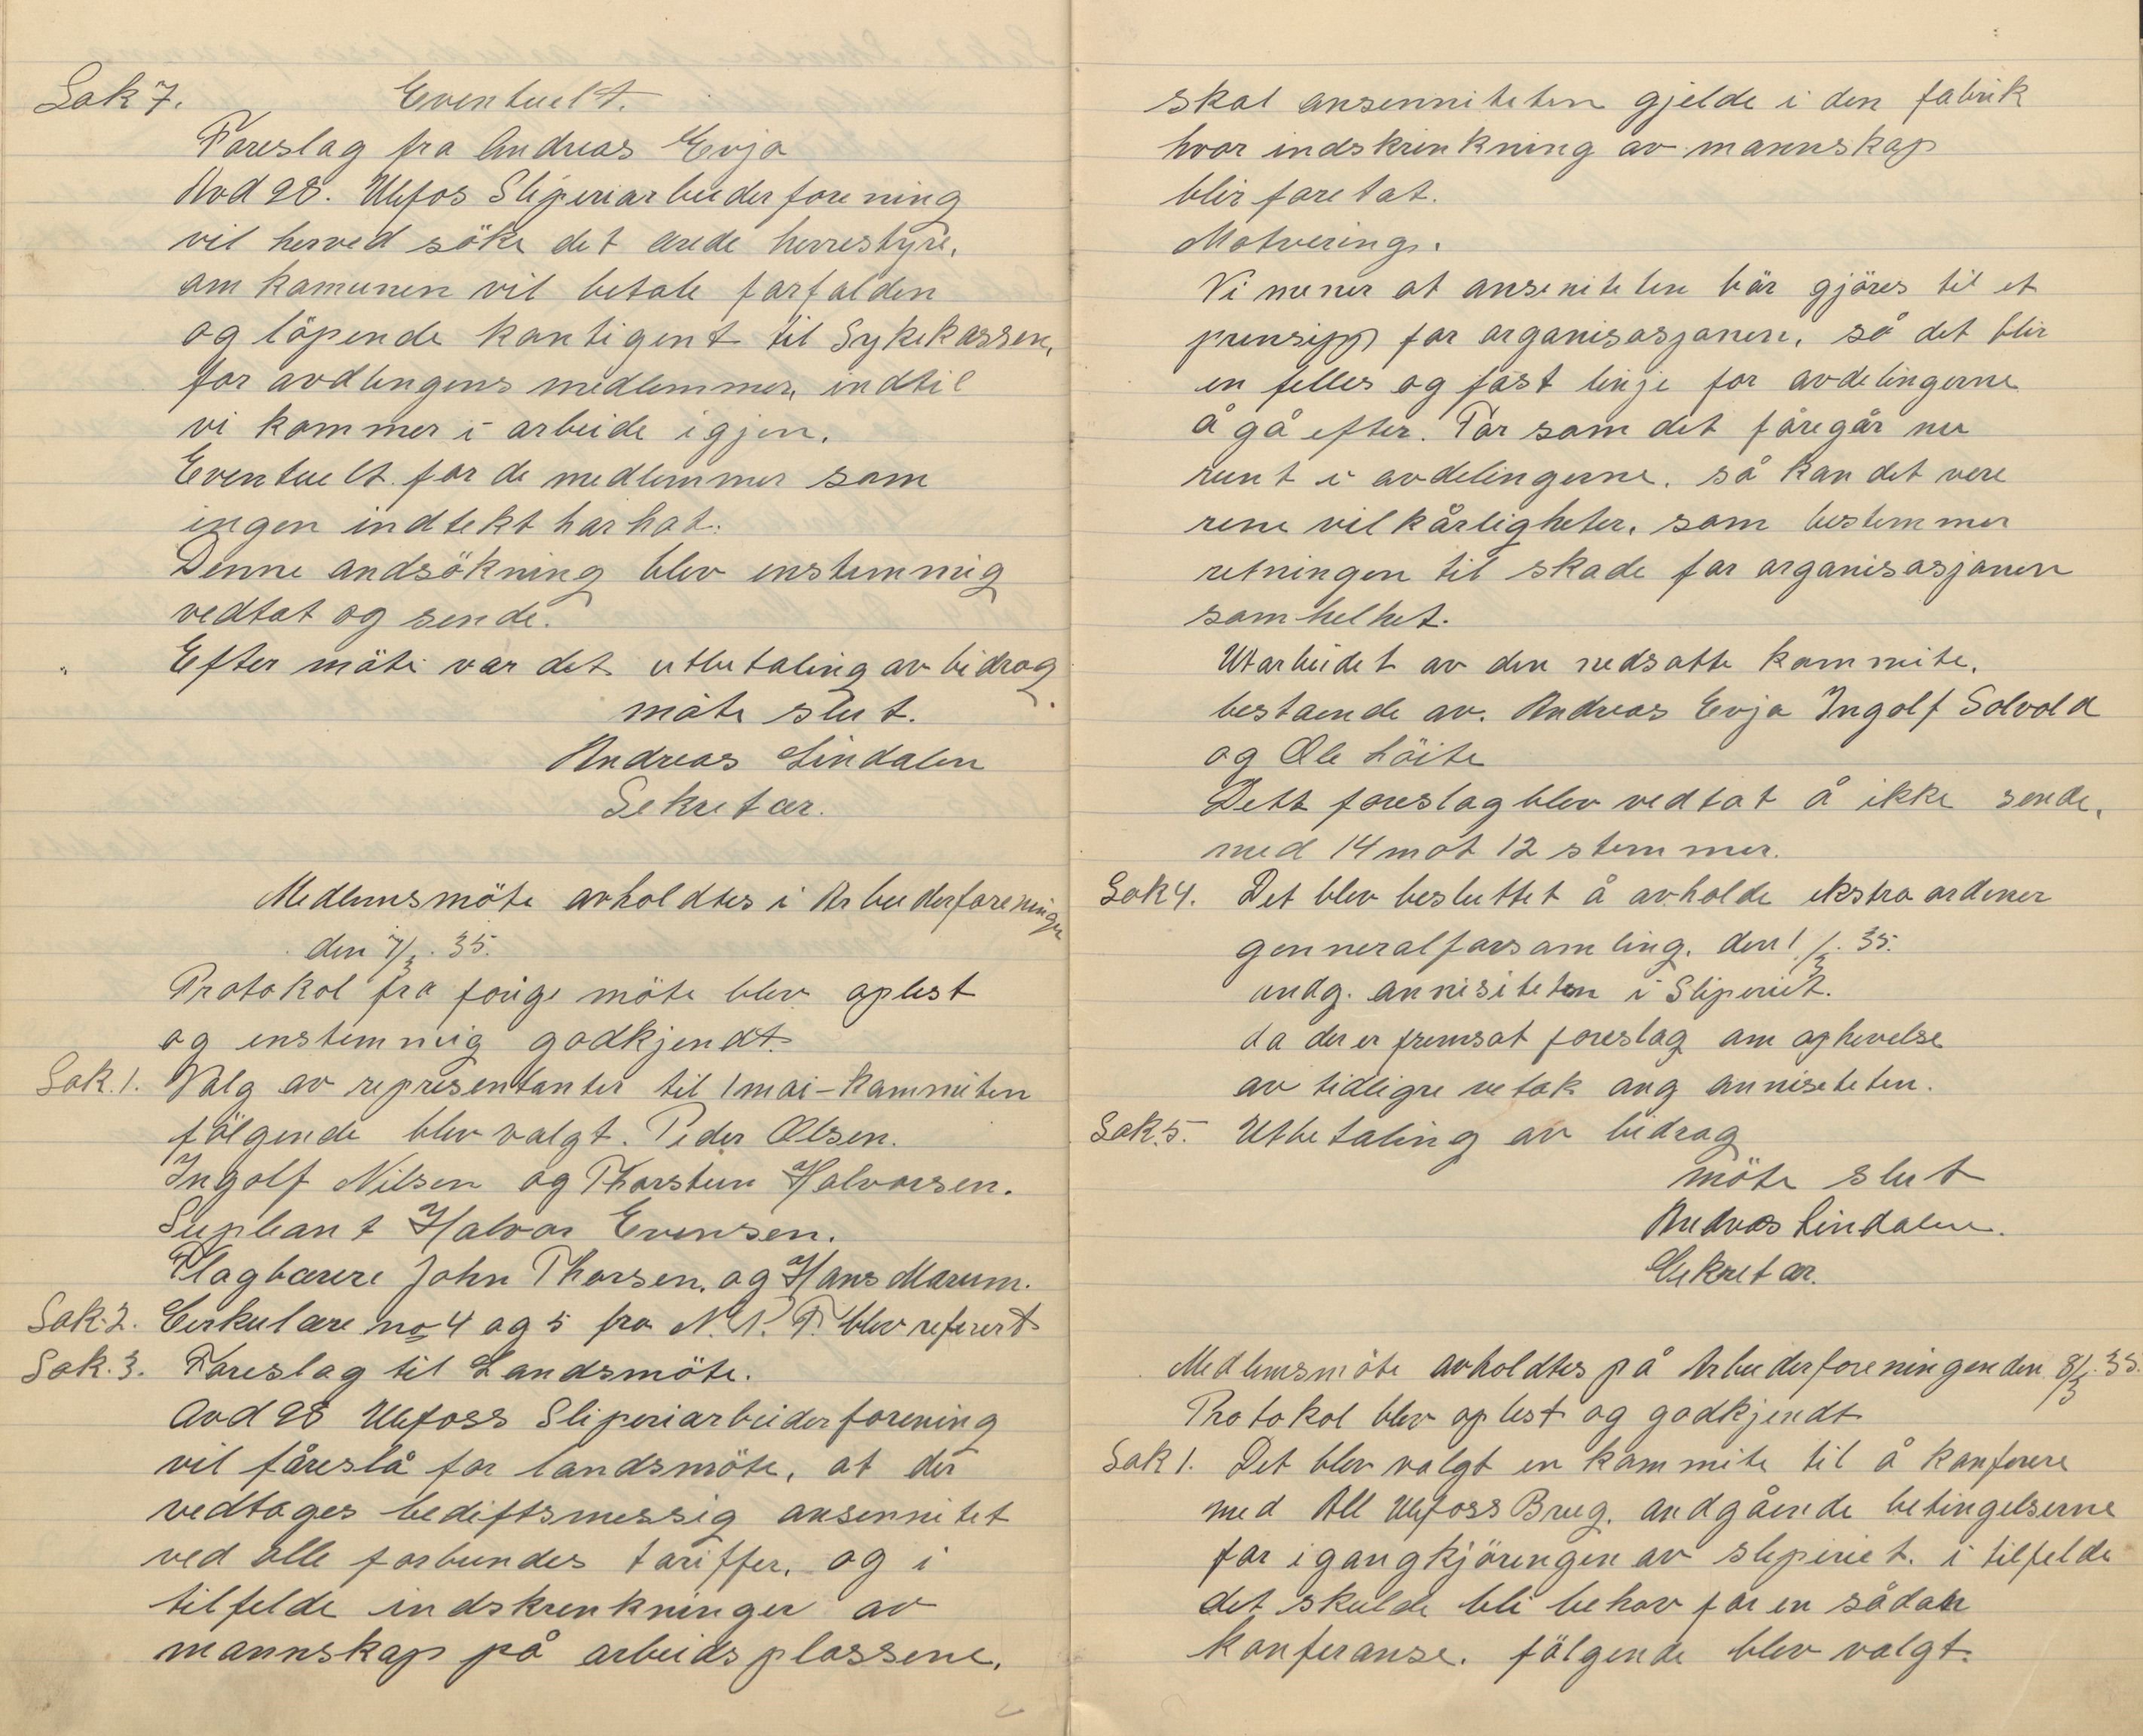 Sak 7. Eventuelt.
Foreslag fra Andreas Evja
Avd 98. Ulefos Sliperiarbeiderforening
vil herved söke det ærede herrestyre,
om kamunen vil betale forfalden
og löpende kontigent til Sykekassen,
for avdlingens medlemmer, indtil
vi kommer i arbeide igjen.
Eventuelt for de medlemmer som
ingen indtekt har hat.
Denne andsökning blev enstemmig
vedtat og sende.
Efter möte var det utbetaling av bidrag
möte slut.
Andreas Lindalen
Sekretær.
Medlemsmöte avholdtes i Arbeiderforeningen
den 7/2. 35.
Protokol fra forige möte blev oplest
og enstemmig godkjendt.
Sak. 1. Valg av representanter til 1 mai-kammiten
fölgende blev valgt. Peder Olsen.
Ingolf Nilsen og Thorstein Halvorsen.
Supleant Halvor Evensen.
Flagbærere John Thorsen. og Hans Marum.
Sak. 2. Cirkulære no 4 og 5 fra N. P. F. blev referert
Sak. 3. Foreslag til Landsmöte.
Avd 98 Ulefoss Sliperiarbeiderforening
vil føreslå for landsmöte, at der
vedtages bediftsmessig ansennitet
ved alle forbundes tariffer, og i
tilfelde indskrenkninger av
mannskap på arbeidsplassene,
skal ansenniteten gjelde i den fabrik
hvor indskrenkning av mannskap
blir foretat.
Motvering.
Vi mener at anseniteten bör gjöres til et
prensipp for organisasjonen, så det blir
en felles og fast linje for avdelingerne
å gå efter. For som det foregår nu
runt i avdelingerne, så kan det vere
rene vilkårligheter, som bestemmer
retningen til skade for organisasjonen
som helhet.
Utarbeidet av den nedsatte kammite,
bestaende av. Andreas Evja Ingolf Solvold
og Ole Löite
Dette foreslag blev vedtat å ikke sende,
med 14 mot 12 stemmer.
Sak 4. Det blev besluttet å avholde ekstraordener
genneralforsamling. den 1/3. 35.
andg. annisiteten i Sliperiet.
da der er fremsat foreslag om ophevelse
av tidligre vetak ang anniseteten.
Sak. 5. Utbetaling av bidrag
möte slut
Andreas Lindalen.
Sekretær.
Medlemsmöte avholdtes på Arbeiderforeningen den 8/3. 35.
Protokol blev oplest og godkjendt
Sak 1. Det blev valgt en kammite til å konferere
med All Ulefoss Brug. andgående betingelserne
for igangkjöringen av sliperiet. i tilfelde
det skulde bli behov for en sådan
konferanse. fölgende blev valgt.